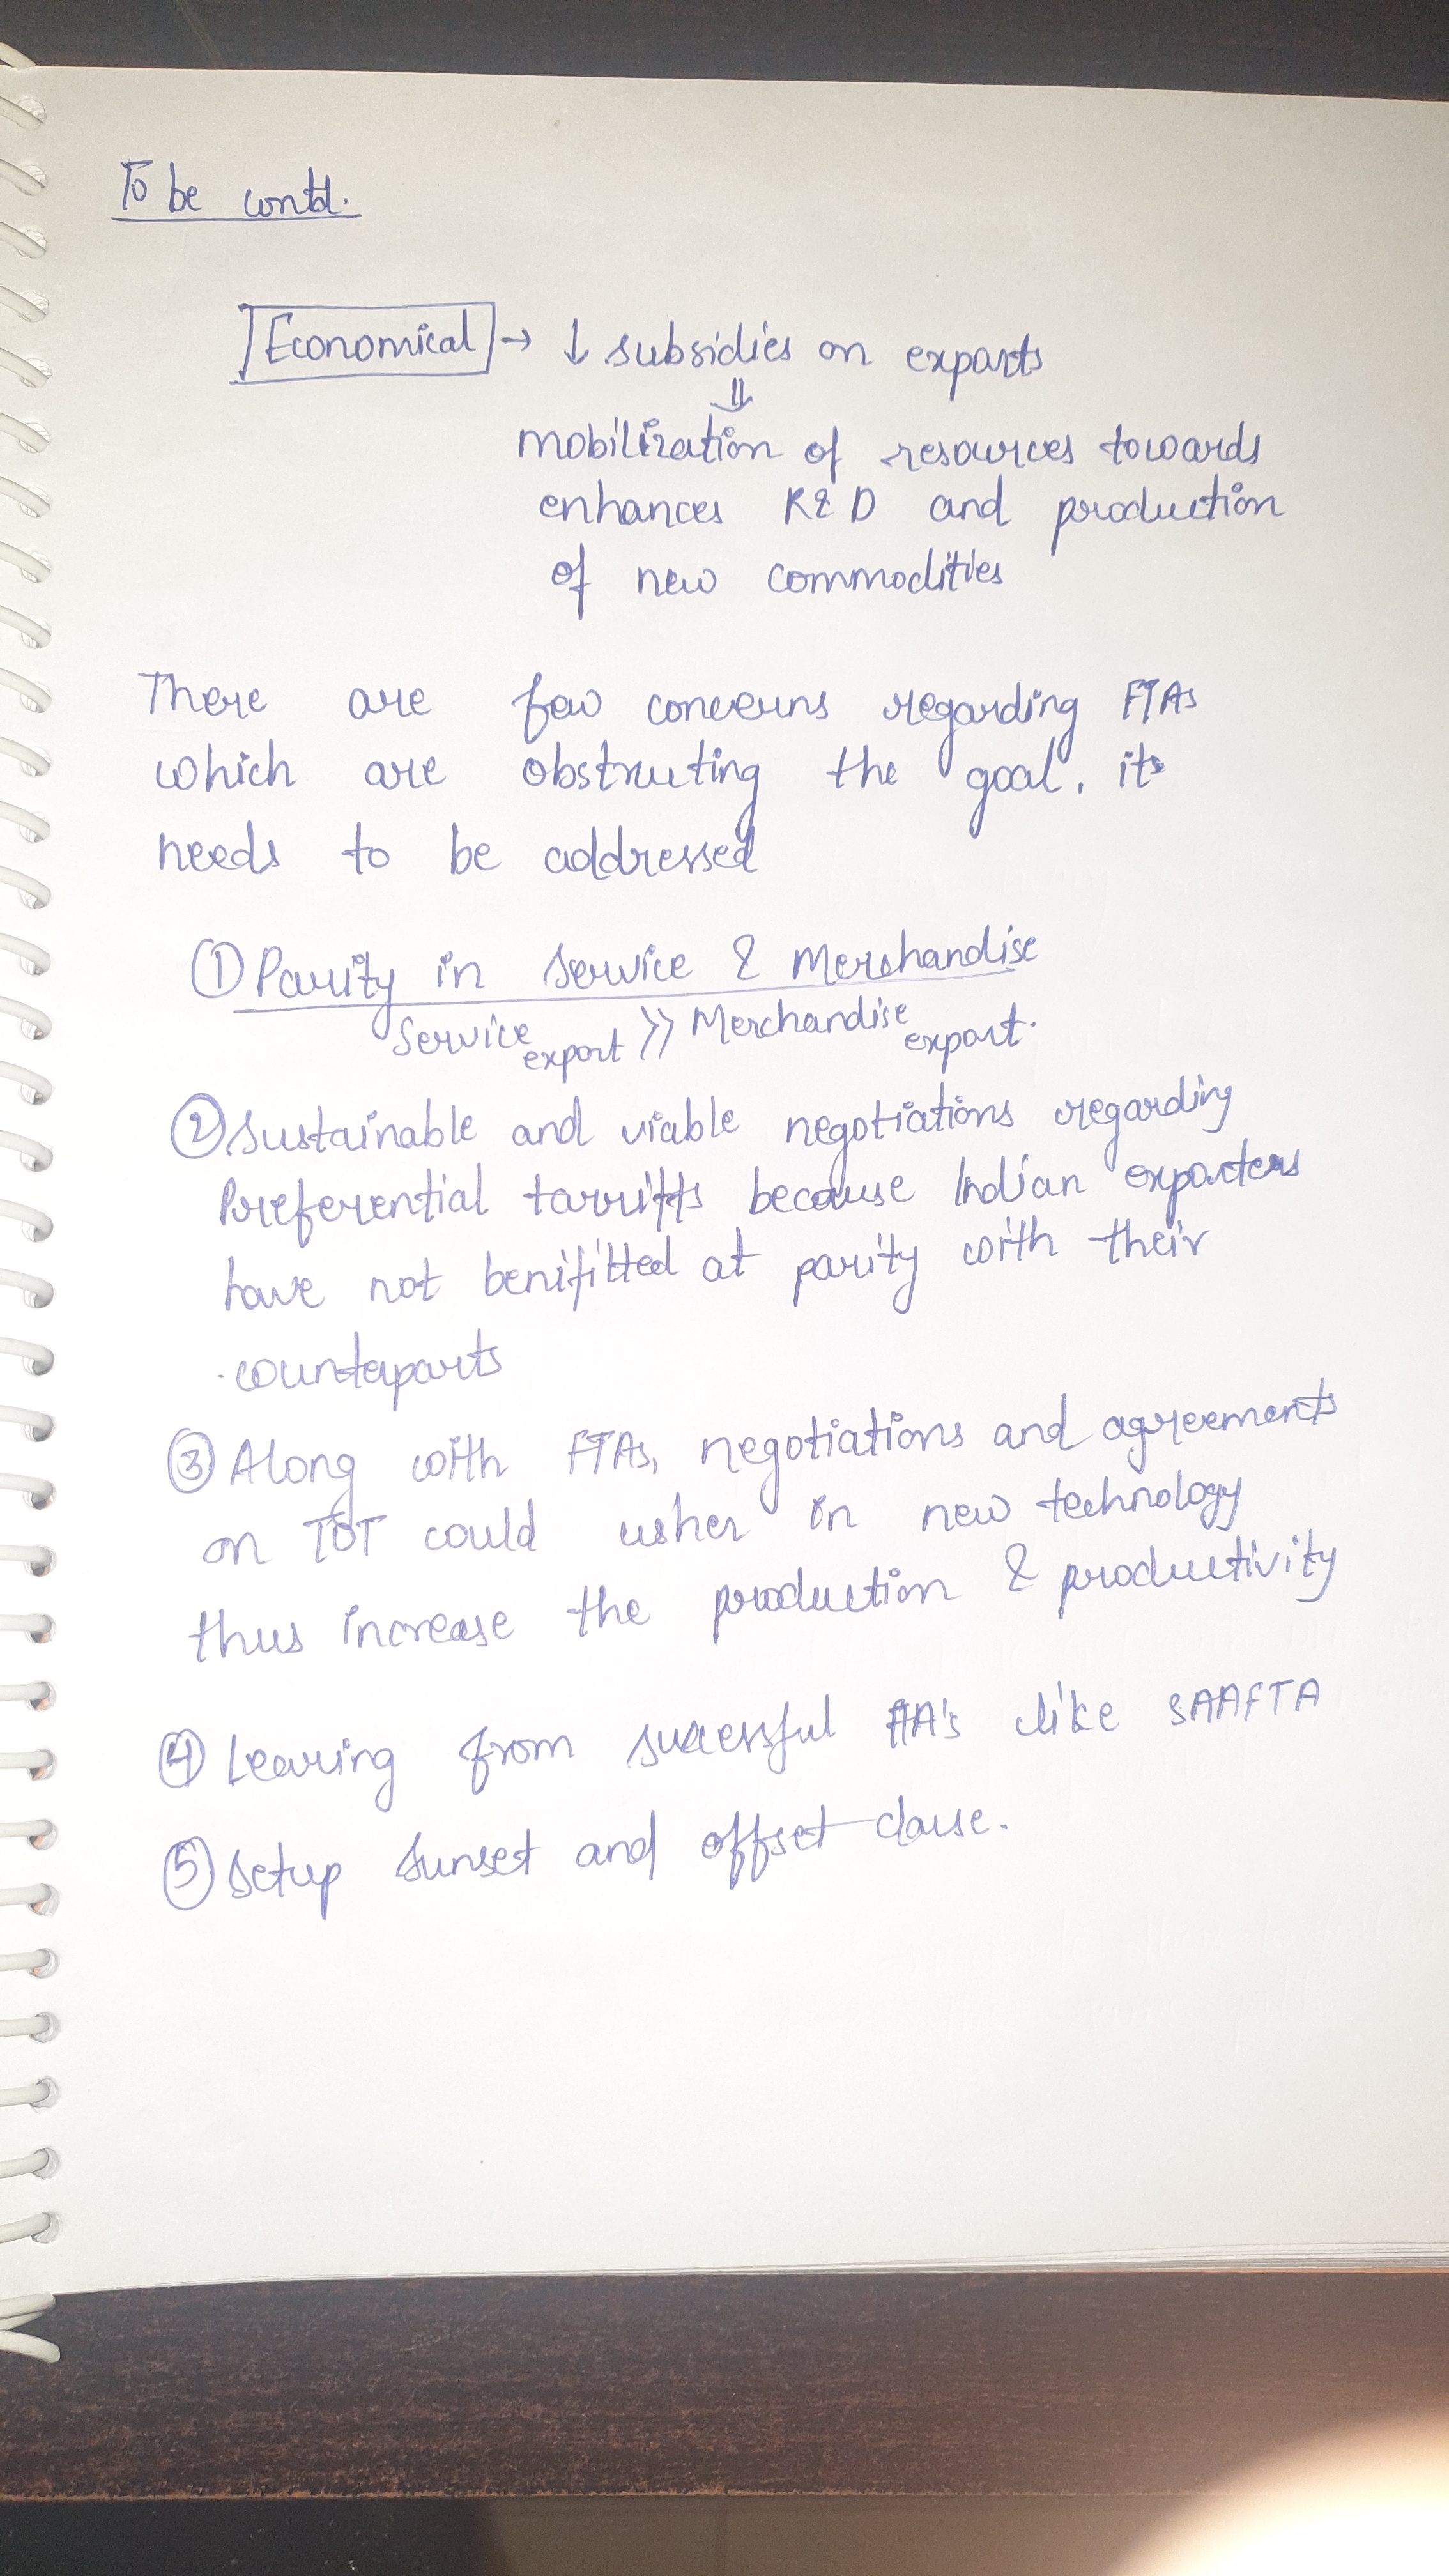 To be contd.
Economical → ↓ subsidies on exports
⇓
mobilization of resources towards
enhances R&D and production
of new commodities
There are few concerns regarding FTAs
which are obstructing the goal, it
needs to be addressed
① Parity in service & Merchandise
Service export >> Merchandise export.
② Sustainable and viable negotiations regarding
Preferential tarriffs because Indian exporters
have not benifitted at parity with their
counterparts
③ Along with FTAs, negotiations and agreements
on TOT could usher in new technology
thus increase the production & productivity
④ Learing from successful FTA's like SAAFTA
⑤ Setup sunset and offset clause.